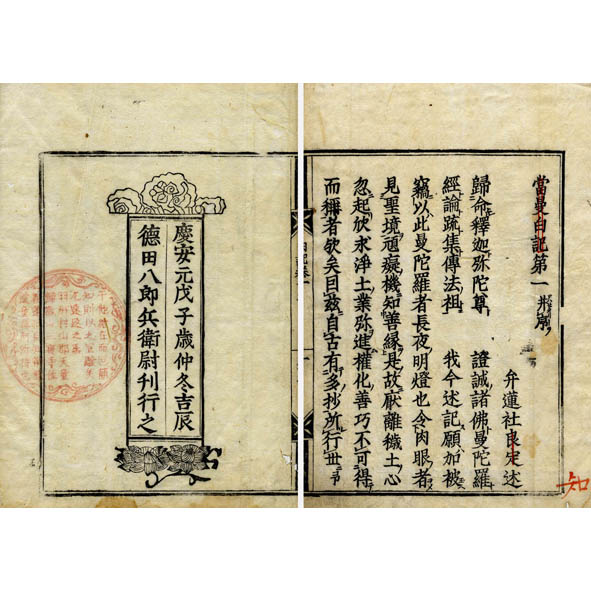 當曼白記第一 并序
弁蓮社良定述
歸命釋迦弥陀尊 證誠諸佛曼陀羅
經論疏集傳法祖 我今述記願加被
竊以此曼陀羅者長夜明燈也令肉眼者
見聖境頑癡機知善緣是故厭離穢土心
忽起欣求淨土業弥進權化善巧不可得
而稱者欤矣因茲自古有多抄所行世予
知
慶安元戊子歲仲冬吉辰
德田八郎兵衛尉刊行之